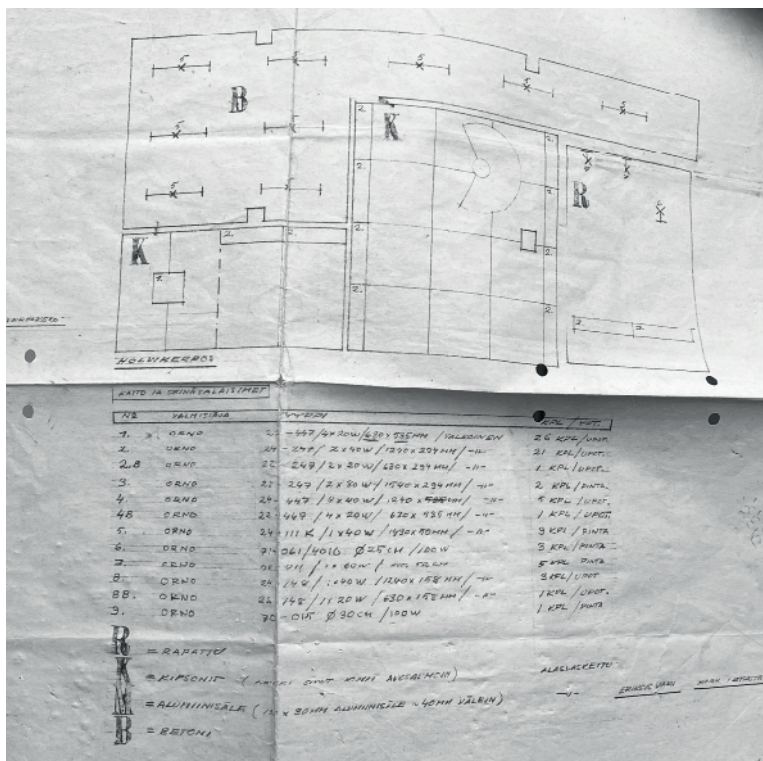 5 5 5 5 5
B
5 5
K
2.
5
R
K
HOLVIKERROS
KATTO JA SEINÄVALAISIMET
NO VALMISTAJA TYYPPI KPL / UPOT.
1. ORNO - 447 / 4x20W / 620 x 595 MM / VALKOINEN 26 KPL/UPOT.
2. ORNO 24 - 247 / 2x40W / 1240 x 294 MM / -"- 21 KPL/UPOT.
2B ORNO 22 - 247 / 2x20W / 630 x 294 MM / -"- 1 KPL/UPOT.
3. ORNO 247 / 2x80W / 1540 x 294 MM / -"- 2 KPL/PINTA.
4. ORNO 24 - 447 / 4x40W / 1240 x / -"- 5 KPL/UPOT.
4B ORNO 22 - 447 / 4x20W / 620 x 595 MM / -"- 1 KPL/UPOT.
5. ORNO 24 - 111 K / 1x40W / -"- 9 KPL/PINTA
6. ORNO 71 - 061/401B Ø 25 CM / 100W 3 KPL/PINTA
7. ORNO 5 KPL/PINTA
8. ORNO 24 - 148 / 1x40W / 1240 x 158 MM / -"- 3 KPL/UPOT
8B. ORNO 22 148 / 1x20W / 630 x 158 MM / -"- 1 KPL/UPOT.
9. ORNO 70 - 015 Ø 30 CM / 100W 1 KPL/PINTA
R = RAPATTU
K = KIPSONIT ALASLASKETTU
M = ALUMIINISÄLE ( x 30MM ALUMIINISÄLE ~40MM VÄLEIN) -"- ERIKSEEN
B = BETONI